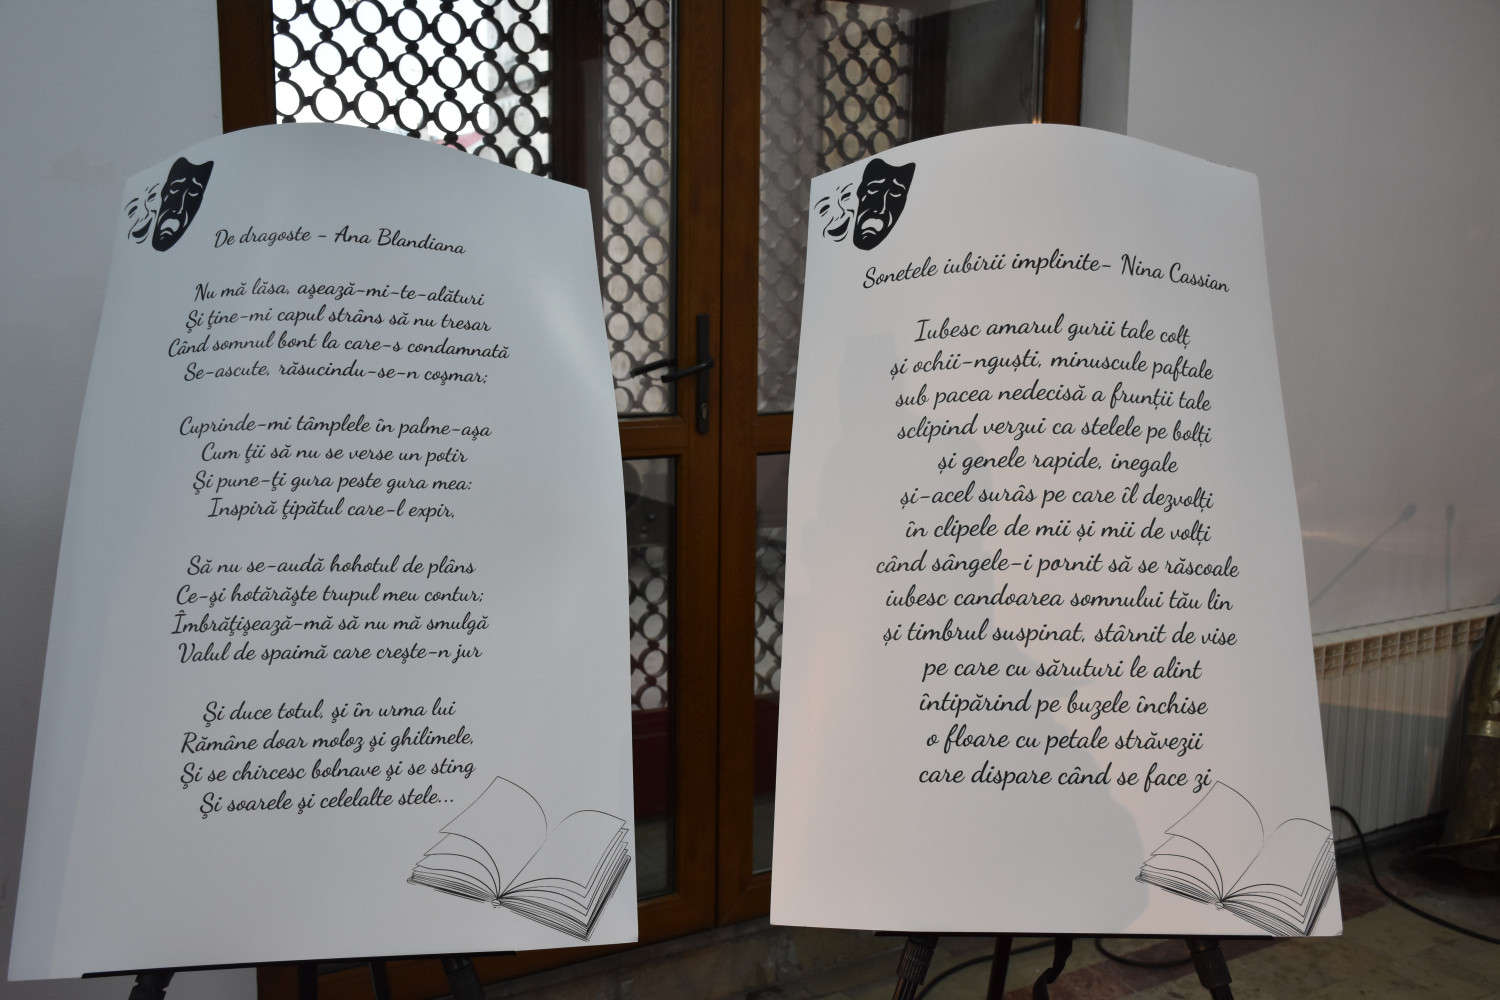 De dragoste - Ana Blandiana
Nu mă lăsa, aşează-mi-te-alături
Şi ţine-mi capul strâns să nu tresar
Când somnul bont la care-s condamnată
Se-ascute, răsucindu-se-n coşmar;
Cuprinde-mi tâmplele în palme-aşa
Cum ţii să nu se verse un potir
Şi pune-ţi gura peste gura mea:
Inspiră ţipătul care-l expir,
Să nu se-audă hohotul de plâns
Ce-şi hotărăşte trupul meu contur;
Îmbrăţişează-mă să nu mă smulgă
Valul de spaimă care creşte-n jur
Şi duce totul, şi în urma lui
Rămâne doar moloz şi ghilimele,
Şi se chircesc bolnave şi se sting
Şi soarele şi celelalte stele...
Sonetele iubirii implinite- Nina Cassian
Iubesc amarul gurii tale colț
și ochii-nguști, minuscule paftale
sub pacea nedecisă a frunții tale
sclipind verzui ca stelele pe bolți
și genele rapide, inegale
și-acel surâs pe care îl dezvolți
în clipele de mii și mii de volți
când sângele-i pornit să se răscoale
iubesc candoarea somnului tău lin
și timbrul suspinat, stârnit de vise
pe care cu săruturi le alint
întipărind pe buzele închise
o floare cu petale străvezii
care dispare când se face zi